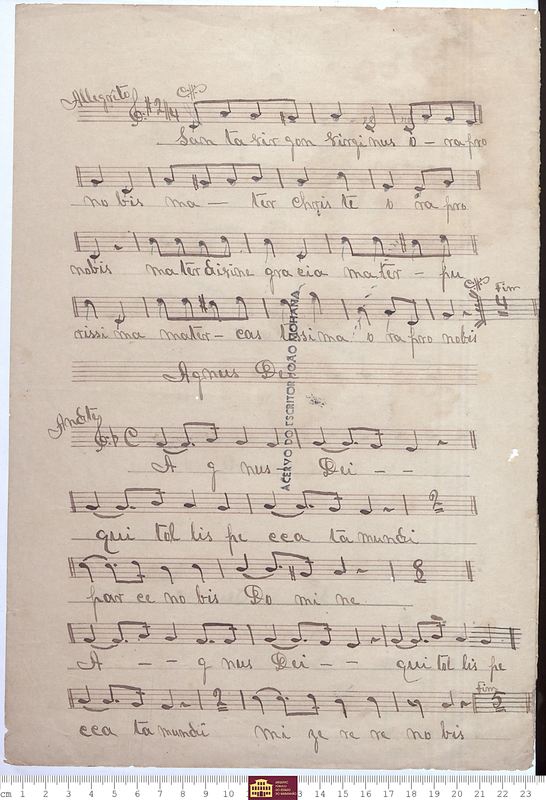 Allegrito 2/4
San ta vir gon virgi nus o - ra pro
no bis ma - ter chris te o ra pro
nobis ma ter divine gra cia ma ter - pu
Fim
rissi ma mater - cas tissi ma o ra pro nobis
14
Agnus Dei
ACERVO DO ESCRITOR JOÃO MOHANA
And.te C
A g nus Dei - -
2
qui tol lis pe cca ta mundi
8
par ce no bis Do mi ne
A - - g nus Dei - - qui tol lis pe
2 Fim 5
cca ta mundi mi ze re re no bis
cm 1 2 3 4 5 6 7 8 9 10 13 14 15 16 17 18 19 20 21 22 23